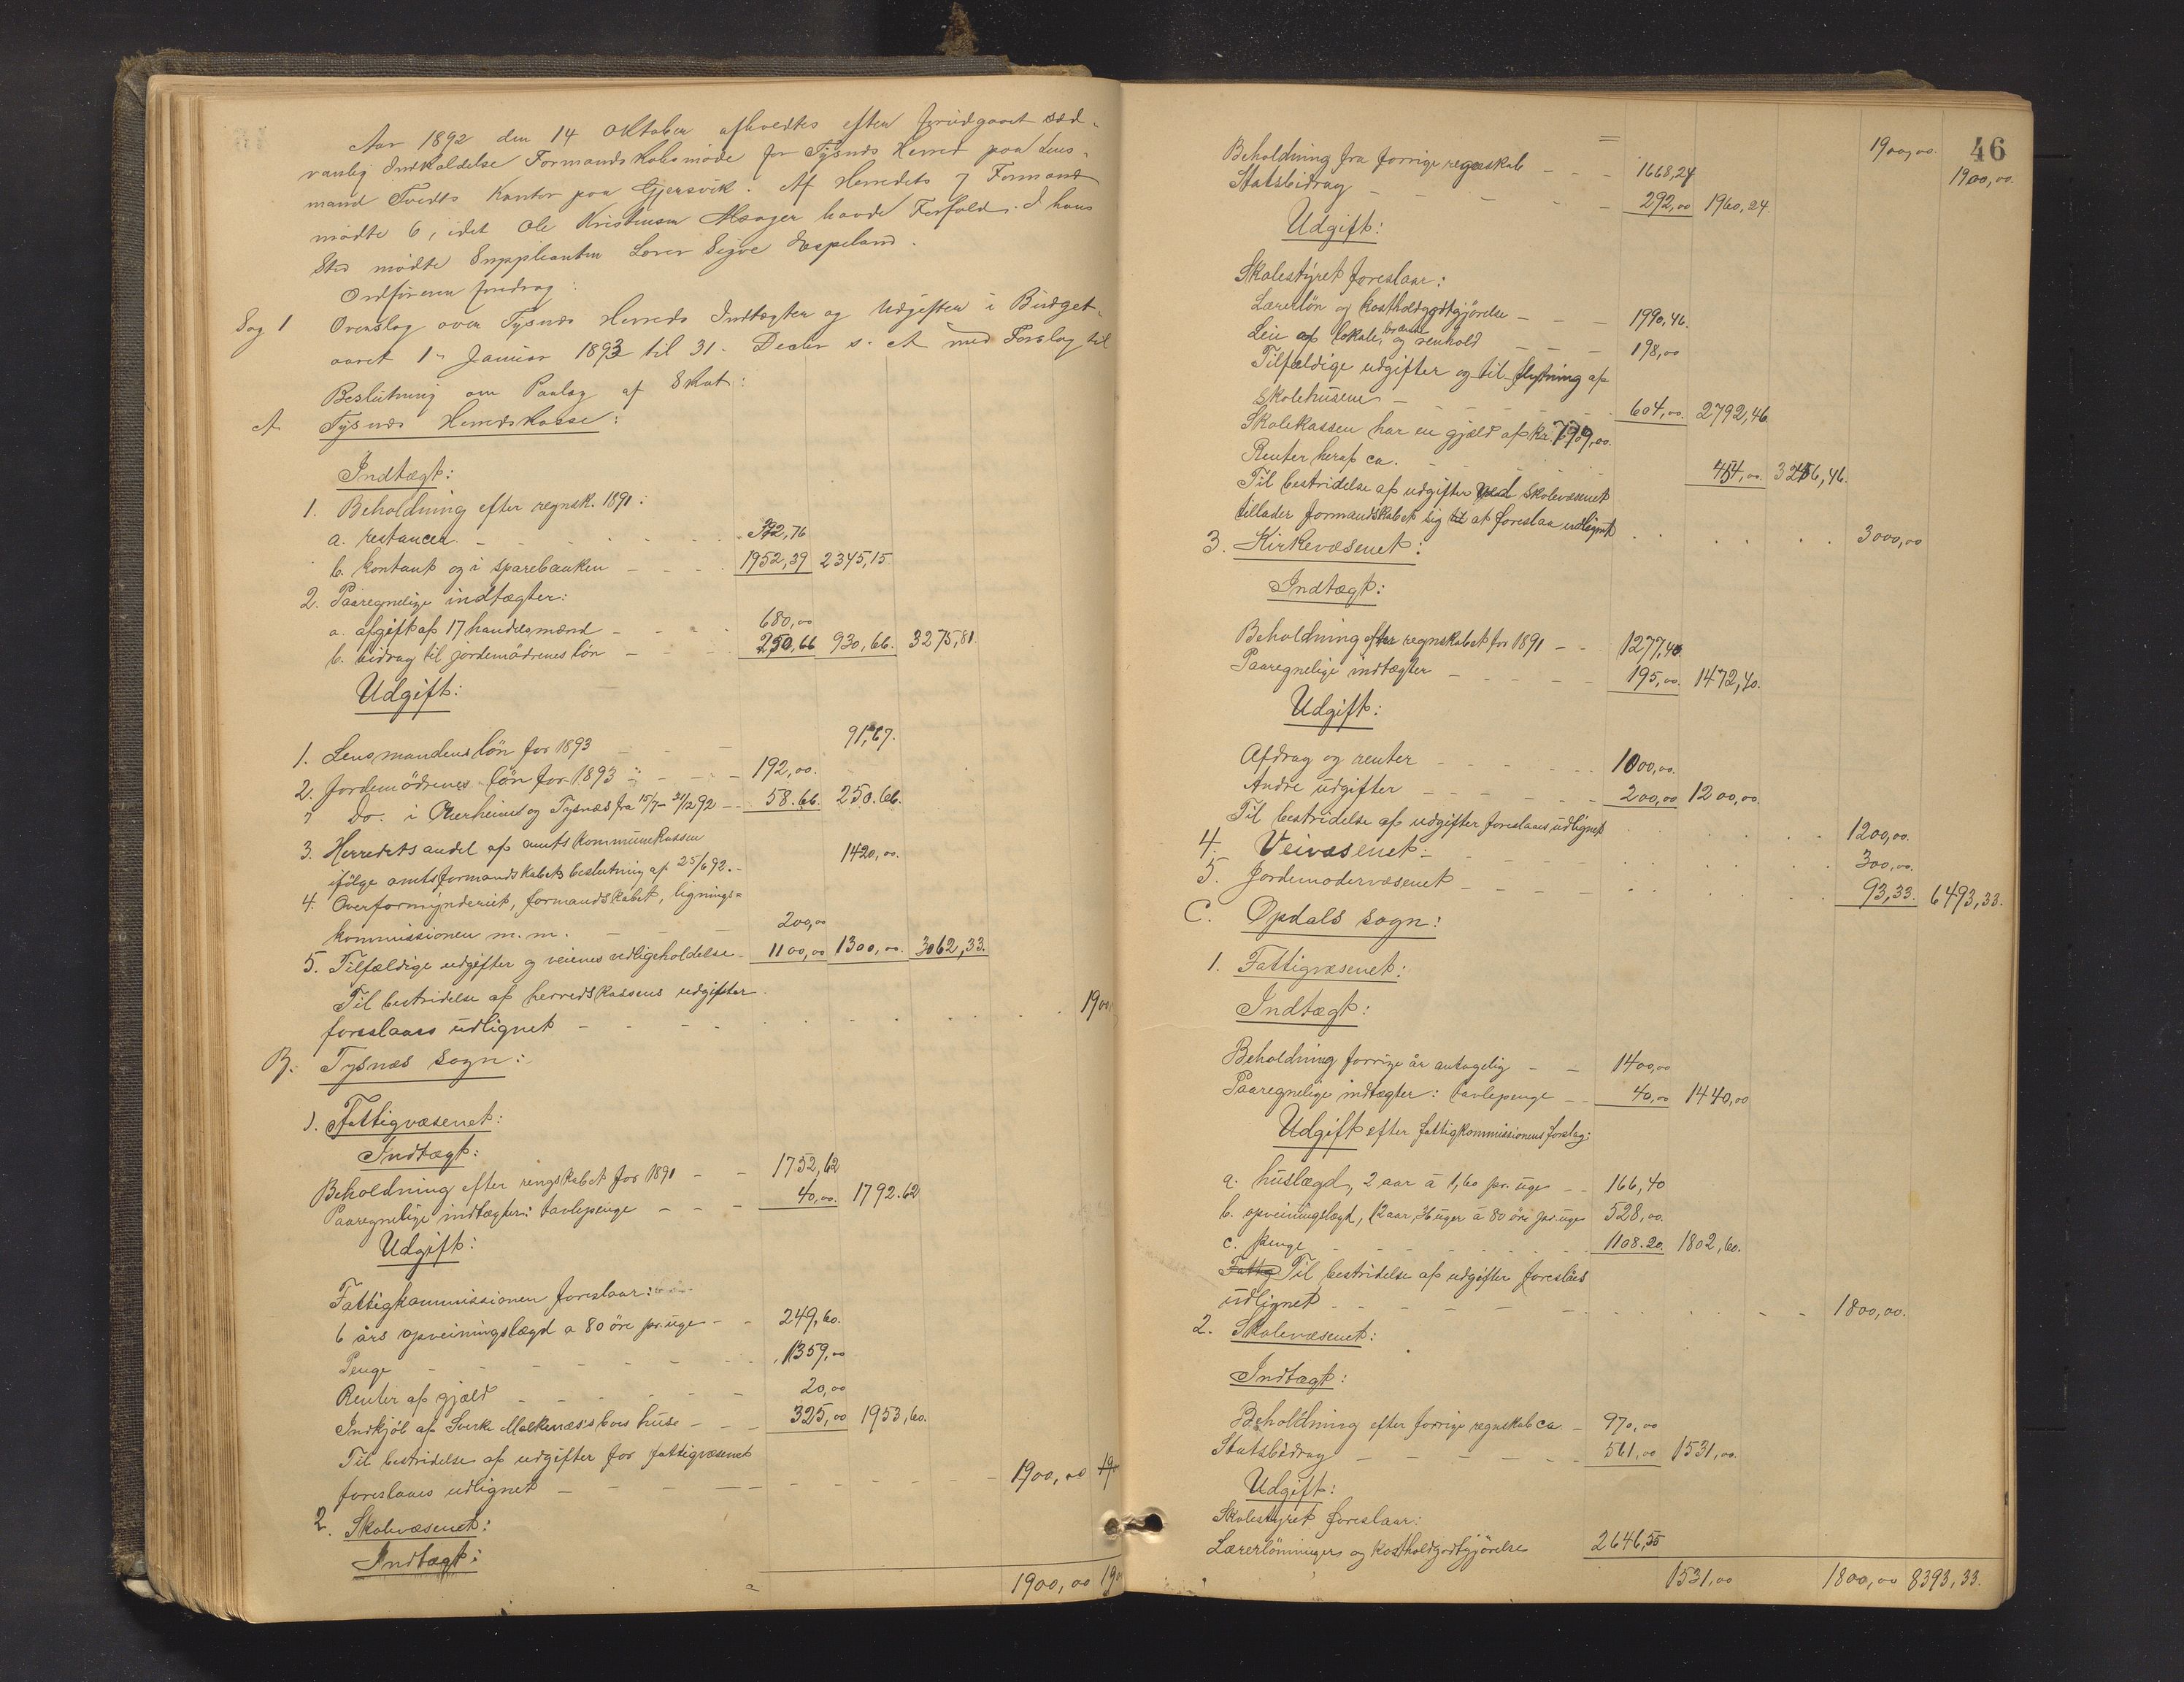 Aar 1892 den 14 Oktober afholdtes efter forudgaaet sæd-
vanlig Indkaldelse Formandskabsmöde for Tysnes Herred paa Lens-
mand Tvedts Kontor paa Gjersvik. Af Herredets 7 Formænd
mödte 6, idet Ole Kristensen havde Forfald. I hans
Sted mödte Suppleanten Sigve Espeland.
Ordföreren foredrog:
Sag 1 Overslag over Tysnes Herreds Indtægter og Udgifter i Budget-
aaret 1ste Januar 1893 til 31. Decbr s. A med Forslag til
Beslutning om Paalæg af Skat:
A Tysnes Herredskasse:
Indtægt:
1. Beholdning efter regnsk. 1891:
a. restancer - 392,76
b. kontant og i sparebanken - 1952,39 2345,15
2. Paaregnelige indtægter:
a. afgift af 17 handelsmænd - 680,00
b. bidrag til jordemödrenes lön - 250,66 930,66. 3275,81
Udgift:
1. Lensmandens lön for 1893 - 91,67.
2. Jordemödrenes lön for 1893 - 192,00.
" Do. i Onerheims og Tysnæs fra 15/7-31/12 92 - 58.66. 250.66.
3. Herredets andel af amtskommunekassen
ifölge amtsformandskabets beslutning af 25/6 92. - 1420,00.
4. Overformynderiet, formandskabet, lignings-
kommissionen m. m. - 200,00
5. Tilfældige udgifter og veienes vedligeholdelse - 1100,00 1300,00. 3062,33.
Til bestridelse af herredskassens udgifter
foreslaaes udlignet - 1900,
B. Tysnæs sogn:
1. Fattigvæsenet:
Indtægt:
Beholdning efter rengskabet for 1891 - 1752,62
Paaregnelige indtægter: tavlepenge - 40,00. 1792.62
Udgift:
Fattigkommissionen foreslaar:
6 års opveiningslægd a 80 öre pr. uge - 249,60.
Penge - 1359,00
Renter af gjæld - 20,00
Indkjöb af Sverke Malkenæs's bos huse - 325,00 1953,60.
Til bestridelse af udgifter for fattigvæsenet
foreslaaes udlignet - 1900,00 190
2. Skolevæsenet:
Indtægt:
1900,00 190
46
1900,00. 1900,00.
Beholdning fra forrige regnskab - 1668,24
Statsbidrag - 292,00 1960,24.
Udgift:
Skolestyret foreslaar:
Lærerlön og kostholdgodtgjörelse - 1990,46.
Leie af lokale, brænde og renhold - 198,00
Tilfældige udgifter og til flytning af
skolehusene - 604,00. 2792,46
Skolekassen har en gjæld af kr. 799,00.
Renter heraf ca. - 454,00. 3246,46.
Til bestridelse af udgifter ved skolevæsenet
tillader formandskabet sig til at foreslaa udlignet 3000,00
3. Kirkevæsenet:
Indtægt:
Beholdning efter regnskabet for 1891 - 1277,40
Paaregnelige indtægter - 195,00. 1472,40.
Udgift:
Afdrag og renter - 1000,00.
Andre udgifter - 200,00 1200,00.
Til bestridelse af udgifter foreslaaes udlignet 1200,00.
4. Veivæsenet - 300,00.
5. Jordemodervæsenet - 93,33. 6493,33.
C. Opdals sogn:
1. Fattigvæsenet:
Indtægt:
Beholdning forrige år antagelig - 1400,00
Paaregnelige indtægter: tavlepenge - 40,00 1440,00
Udgift efter fattigkommissionens forslag:
a. huslægd, 2 aar à 1,60 pr. uge - 166,40
b. opveiningslægd, 12 aar, 36 uger à 80 öre pr. uge 528,00.
c. penge - 1108.20. 1802,60.
Fattig Til bestridelse af udgifter foreslåes
udlignet - 1800,00.
2. Skolevæsenet:
Indtægt:
Beholdning efter forrige regnskab ca - 970,00
Statsbidrag - 561,00 1531,00.
Udgift:
Skolestyret foreslaar:
Lærerlönninger og kostholdgodtgjörelse 2646,55
1531,00 1800,00 8393,33.